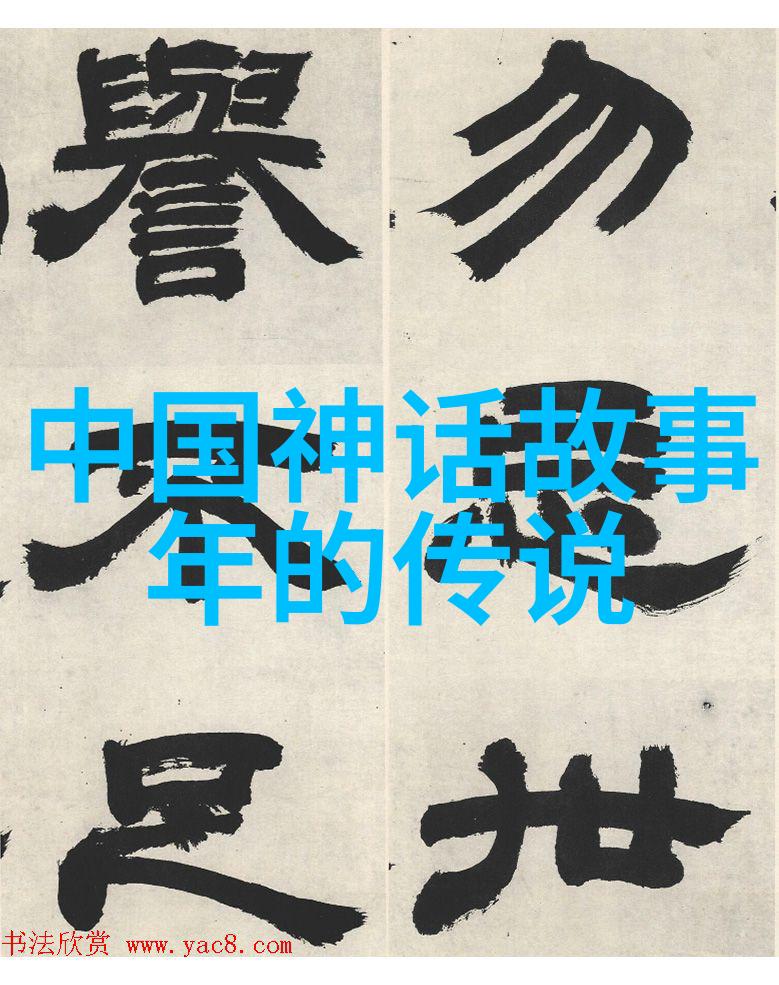 勿忘世
譽不足
中国神话故事
年的传说
书法欣赏 www.yac8.com